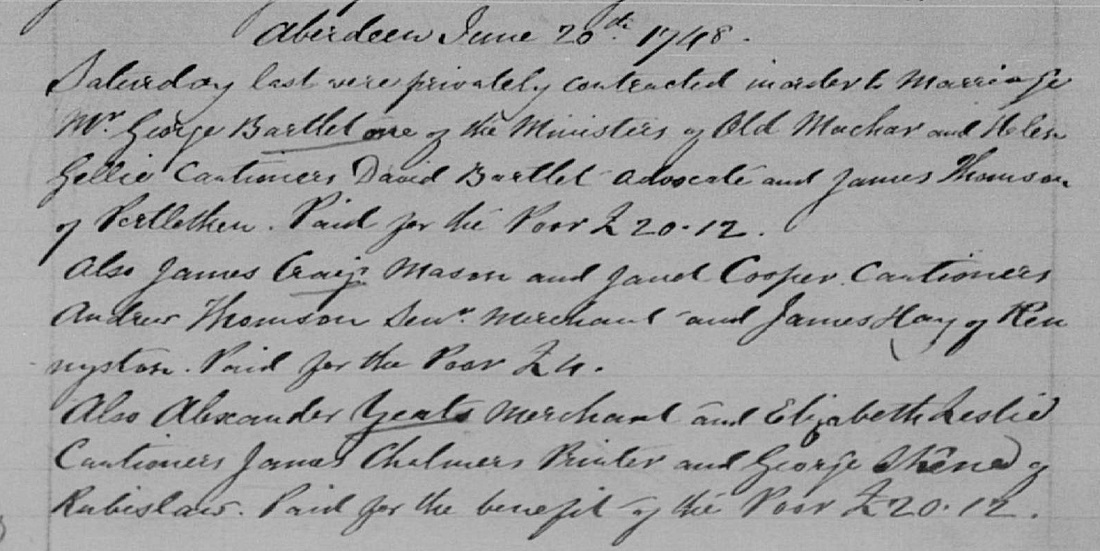 Aberdeen June 20th. 1748.
Saturday last were privately contracted in order to Marriage
Mr. George Bartlet one of the Ministers of Old Machar and Helen
Gellie Cautioners David Bartlet Advocate and James Thomson
of Portlethen. Paid for the Poor £20.12.
Also James Craig Mason and Janet Cooper Cautioners
Andrew Thomson Senr. Merchant and James Hay of Ren
nyston. Paid for the Poor £4.
Also Alexander Yeats Merchant and Elizabeth Leslie
Cautioners James Chalmers Printer and George Skene of
Rubislaw. Paid for the benefit of the Poor £20.12.